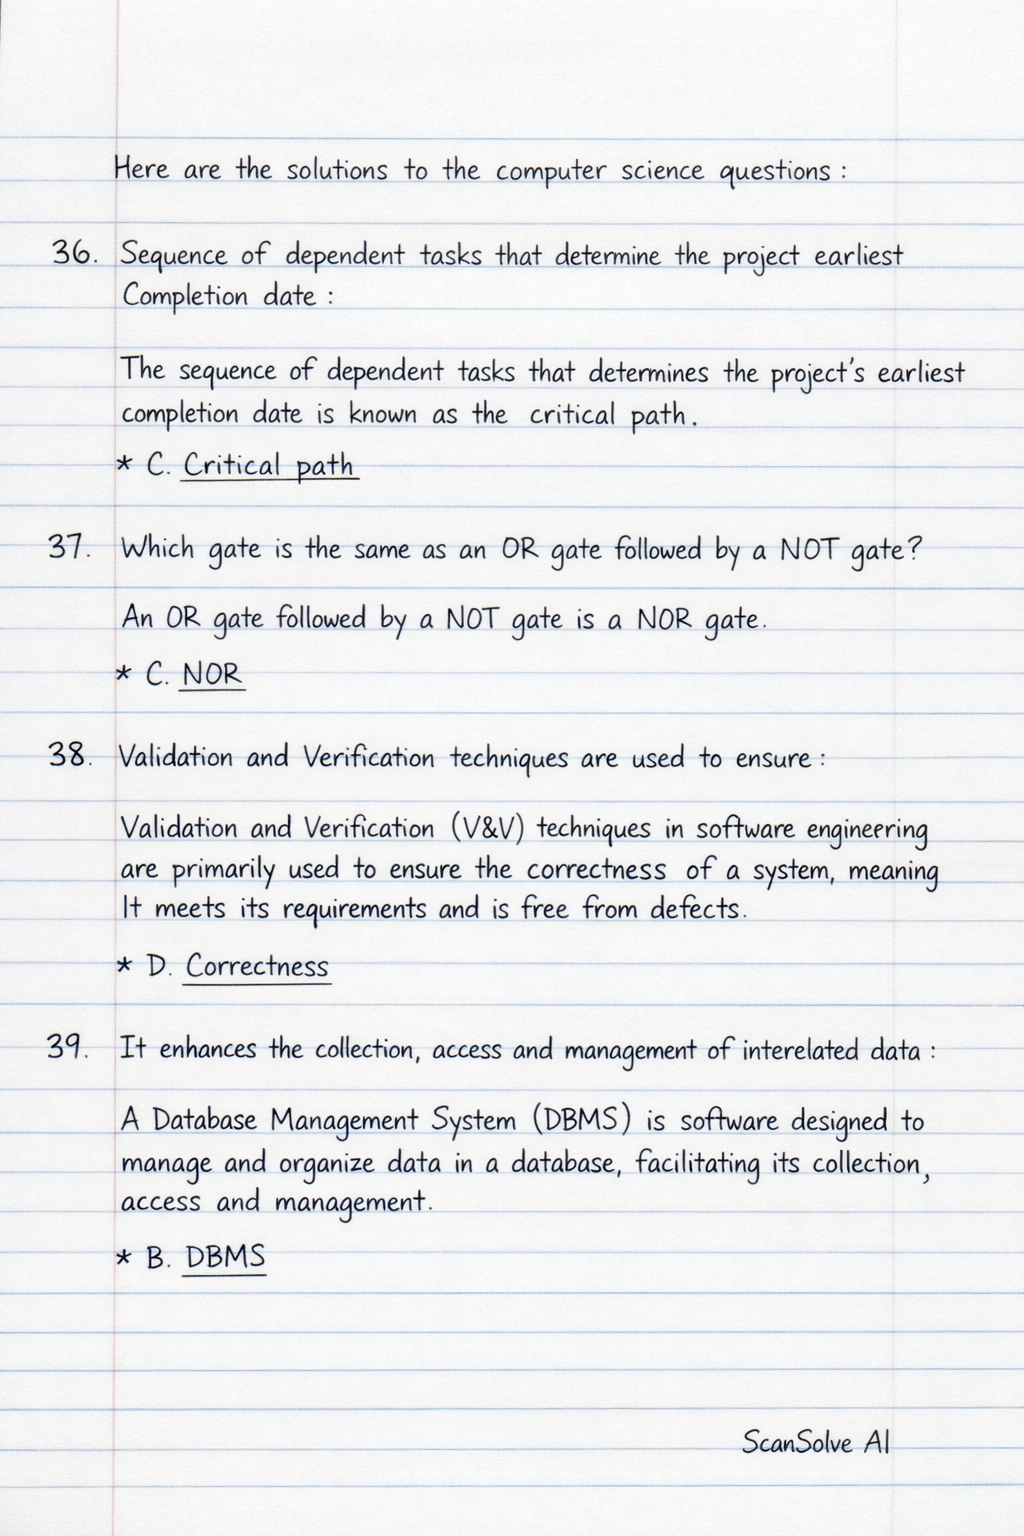 Here are the solutions to the computer science questions :
36. Sequence of dependent tasks that determine the project earliest
Completion date :
The sequence of dependent tasks that determines the project's earliest
completion date is known as the critical path.
* C. Critical path
37. Which gate is the same as an OR gate followed by a NOT gate?
An OR gate followed by a NOT gate is a NOR gate.
* C. NOR
38. Validation and Verification techniques are used to ensure :
Validation and Verification (V&V) techniques in software engineering
are primarily used to ensure the correctness of a system, meaning
It meets its requirements and is free from defects.
* D. Correctness
39. It enhances the collection, access and management of interelated data :
A Database Management System (DBMS) is software designed to
manage and organize data in a database, facilitating its collection,
access and management.
* B. DBMS
ScanSolve AI